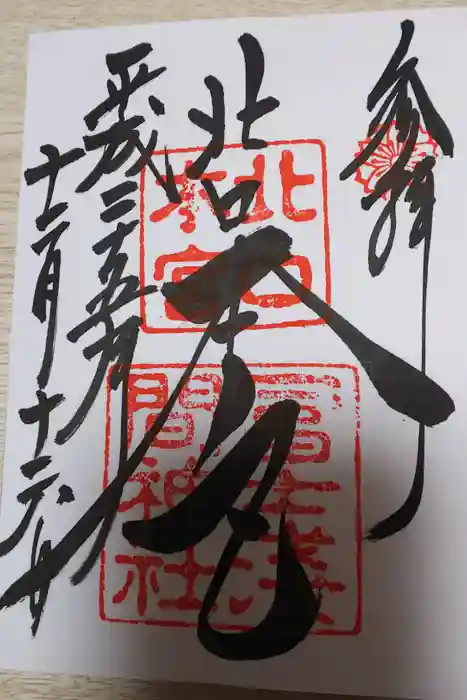 参拝
北口本宮
北口
本宮
冨士浅
間神社
平成二十五年
十二月十六日